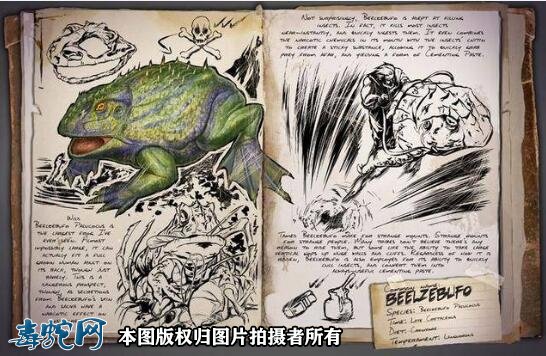 Wild
Beelzebufo Palucocus is
the largest frog I've
ever seen. Almost
impossibly large, it can
actually fit a full
grown human adult on
its back, though just
barely. This is a
dangerous prospect,
though, as secretions
from Beelzebufo's skin
and saliva have a
narcotic effect on
Not surprisingly, Beelzebufo is adept at killing
insects. In fact, it kills most insects
near-instantly, and quickly digests them. It even combines
the narcotic chemicals in its mouth with the insects chitin
to create a sticky substance, allowing it to quickly grab
prey from afar, and yielding a form of Cementing Paste.
Tamed Beelzebufo make for strange mounts. Strange mounts
for strange people. Many tribes don't believe there's any
reason to ride them, but some like the ability to take large
vertical hops up huge walls and cliffs. Regardless of how it is
Beelzebufo is also employed for its ability to quickly
cull insects, and convert them into
useful cementing paste.
Common
BEELZEBUFO
Species: Beelzebufo Palucocus
Time: Late Cretaceous
Diet: Carnivore
Temperament:
毒蛇网
本图版权归图片拍摄者所有